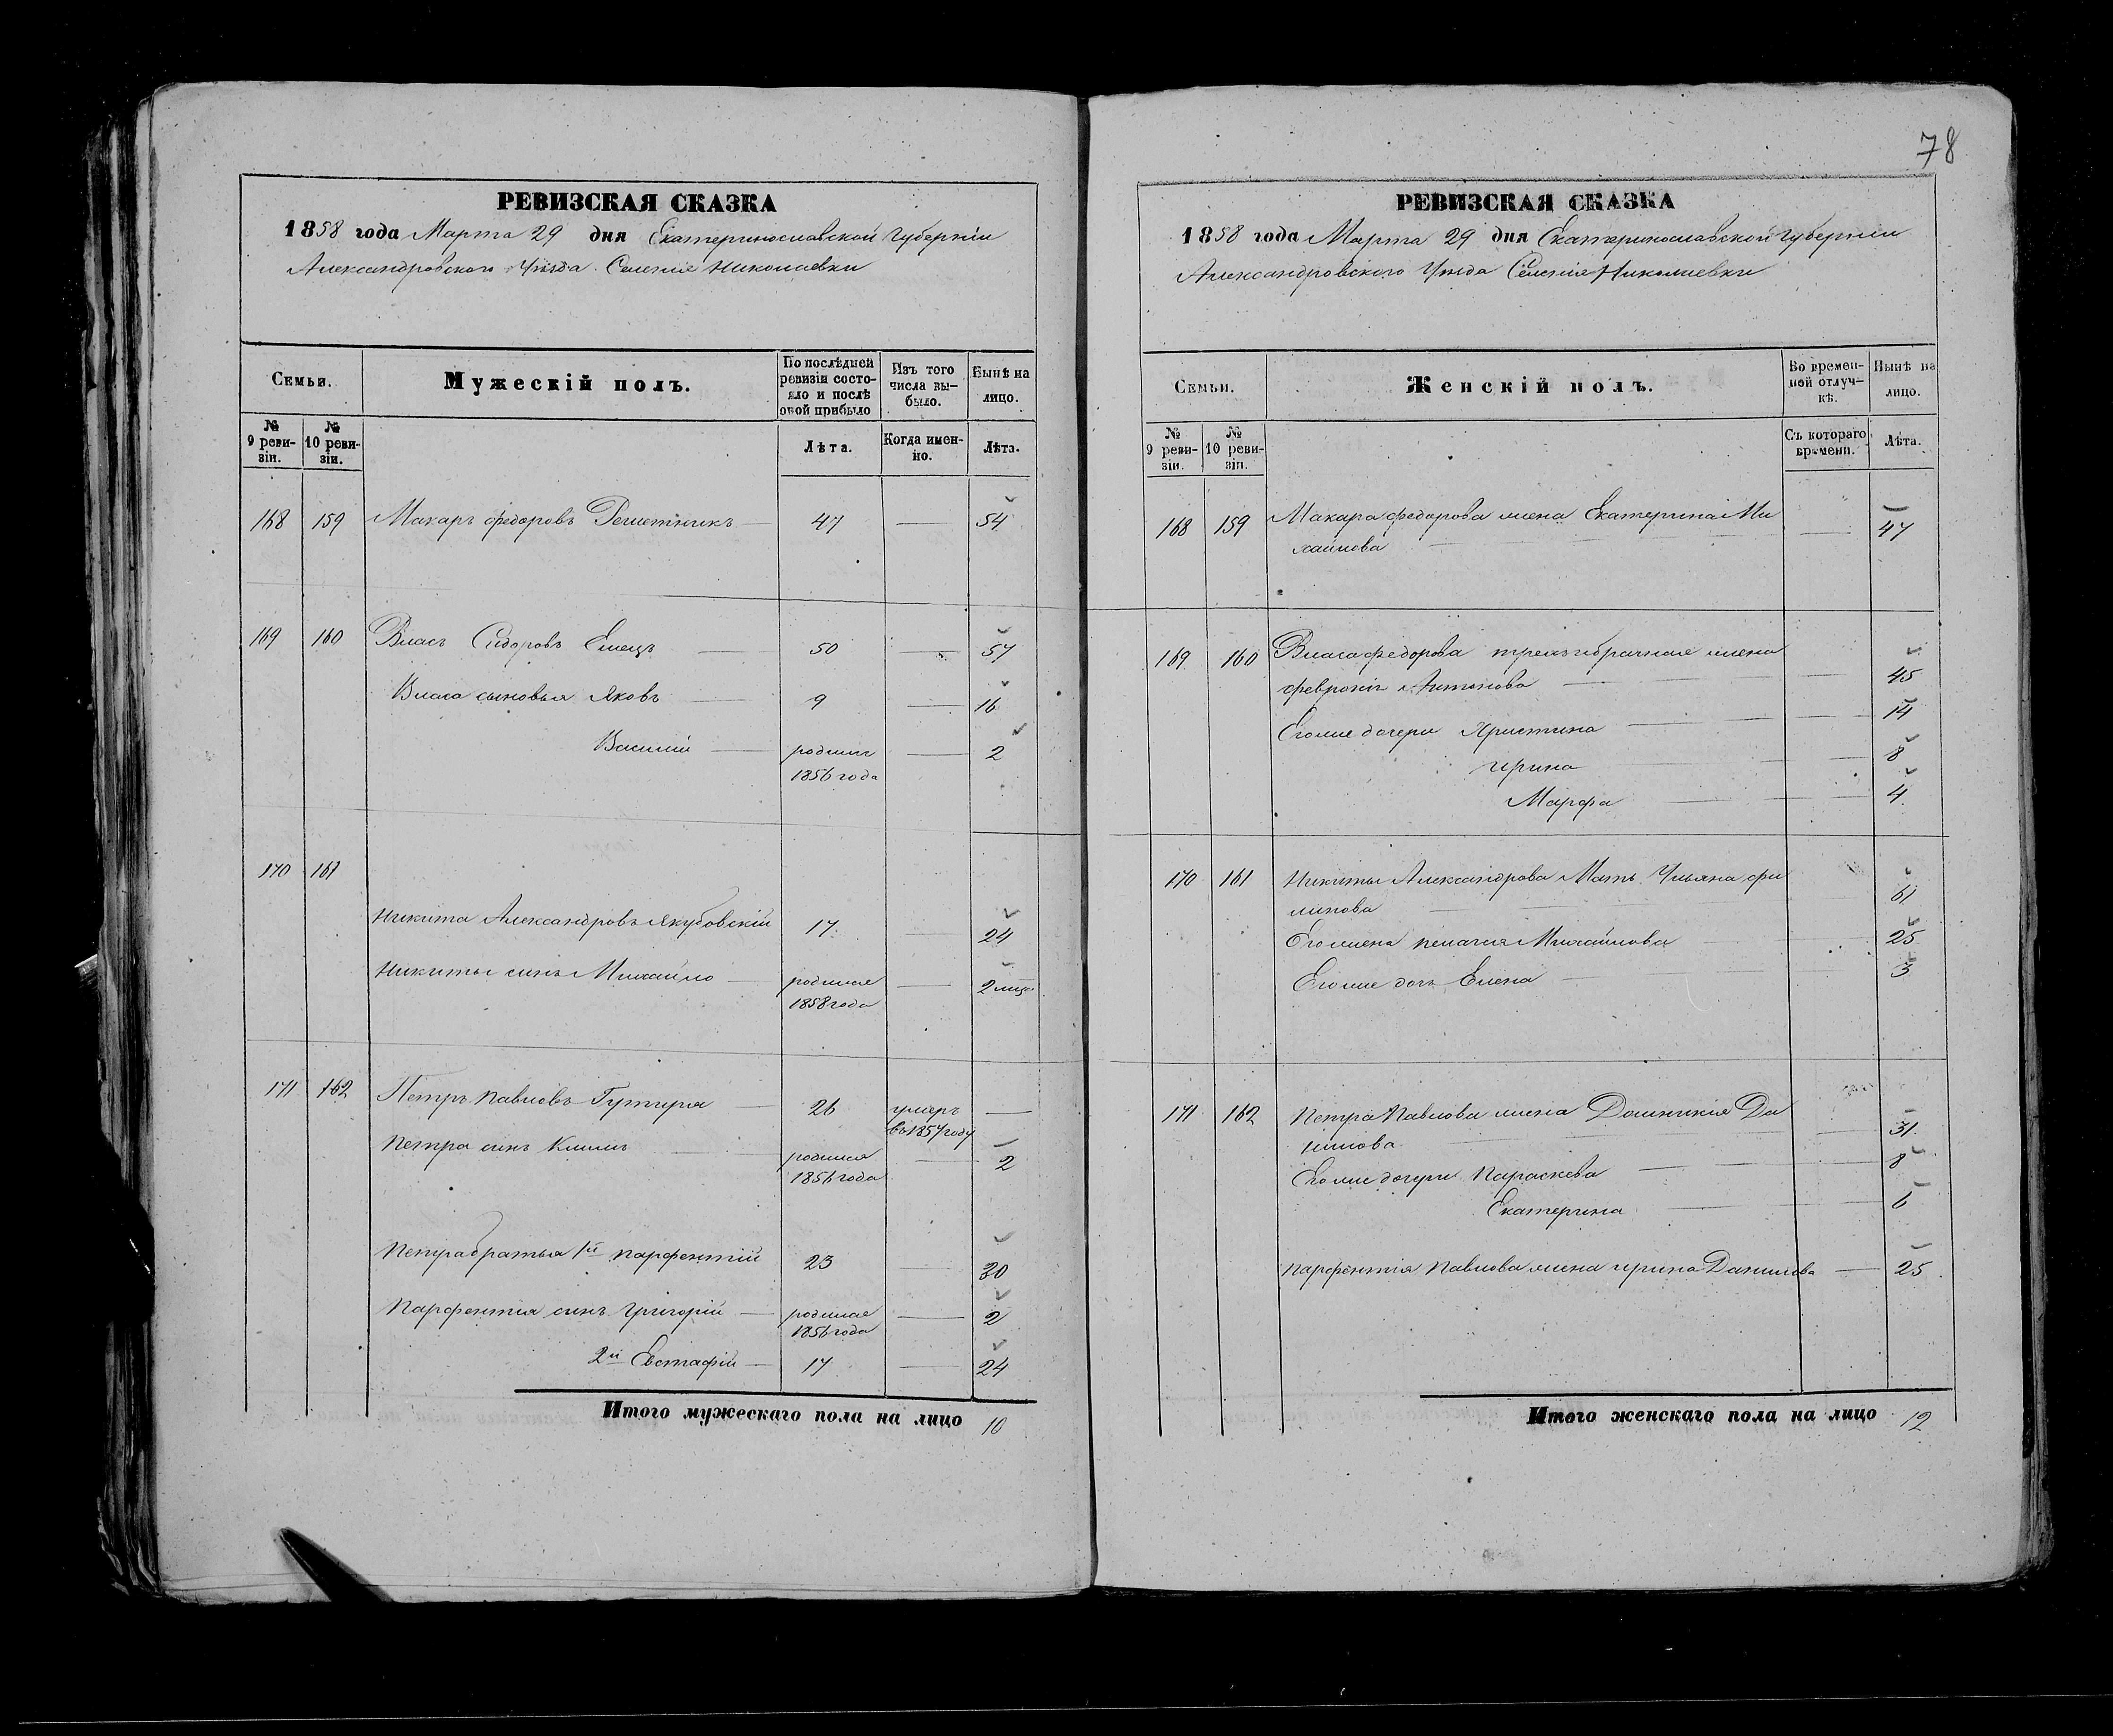 78
РЕВИЗСКАЯ СКАЗКА
1858 года Марта 29 дня Екатеринославской Губерніи
Александровского Уѣзда Селенія Николаевки
Семьи.
Мужескій полъ.
По послѣдней ревизіи состояло и послѣ оной прибыло
Изъ того числа выбыло.
Нынѣ на лицо.
№ 9 ревизіи.
№ 10 ревизіи.
Лѣта.
Когда именно.
Лѣта.
168 159 Макаръ Федоровъ Решетникъ 47 54
169 160 Власъ Сидоровъ Емецъ 50 57
Власа сыновья Яковъ 9 16
Василій родился 1856 года 2
170 161
Никита Александровъ Якубовскій 17 24
Никиты сынъ Михайло родился 1858 года 2 мца
171 162 Петръ Павловъ 26 умеръ въ 1857 году
Петра сынъ Климъ родился 1856 года 2
Петра братья 1й Парфентій 23 30
Парфентія сынъ Григорій родился 1856 года 2
2й Евстафій 17 24
Итого мужескаго пола на лицо 10
РЕВИЗСКАЯ СКАЗКА
1858 года Марта 29 дня Екатеринославской Губерніи
Александровского Уѣзда Селенія Николаевки
Семьи.
Женскій полъ.
Во временной отлучкѣ.
Нынѣ на лицо.
№ 9 ревизіи.
№ 10 ревизіи.
Съ котораго времени.
Лѣта.
168 159 Макара Федорова жена Екатерина Ми
хайлова 47
169 160 Власа Федорова жена
Февронія Антонова 45
Его же дочери Христина 14
Ирина 8
Марфа 4
170 161 Никиты Александрова Мать Ульяна Фи
липова 61
Его жена Пелагия Михайлова 25
Его же дочь Елена 3
171 162 Петра Павлова жена Домникия Да
нилова 31
Его же дочери Параскева 8
Екатерина 6
Парфентія Павлова жена Ирина Данилова 25
Итого женскаго пола на лицо 12